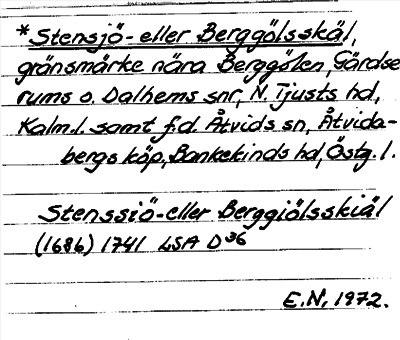 *Stensjö- eller Berggölsskäl,
gränsmärke nära Berggölen, Gärdse
rums o. Dalhems snr, N. Tjusts hd,
Kalm.l. samt f.d. Åtvids sn, Åtvida-
bergs köp, Bankekinds hd, Östg.l.
Stenssiö-eller Berggiölsskiäl
(1686) 1741 LSA D36
E.N., 1972.